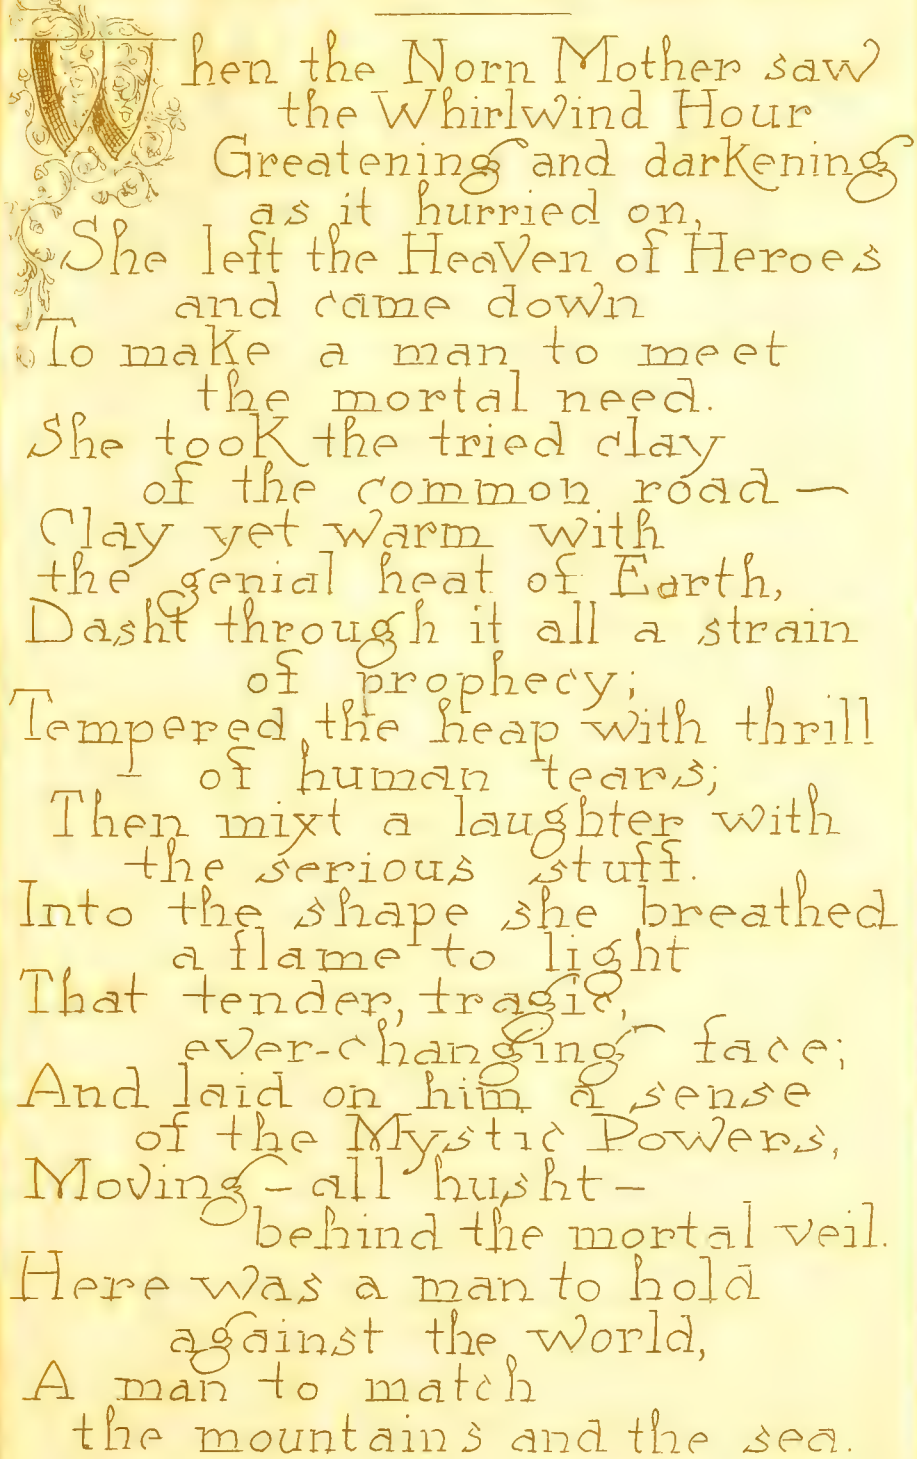 When the Norn Mother saw
the Whirlwind Hour
Greatening and darkening
as it hurried on,
She left the Heaven of Heroes
and came down
To make a man to meet
the mortal need.
She took the tried clay
of the common road —
Clay yet warm with
the genial heat of Earth,
Dasht through it all a strain
of prophecy;
Tempered the heap with thrill
of human tears;
Then mixt a laughter with
the serious stuff.
Into the shape she breathed
a flame to light
That tender, tragic,
ever-changing face;
And laid on him a sense
of the Mystic Powers,
Moving — all husht —
behind the mortal veil.
Here was a man to hold
against the world,
A man to match
the mountains and the sea.